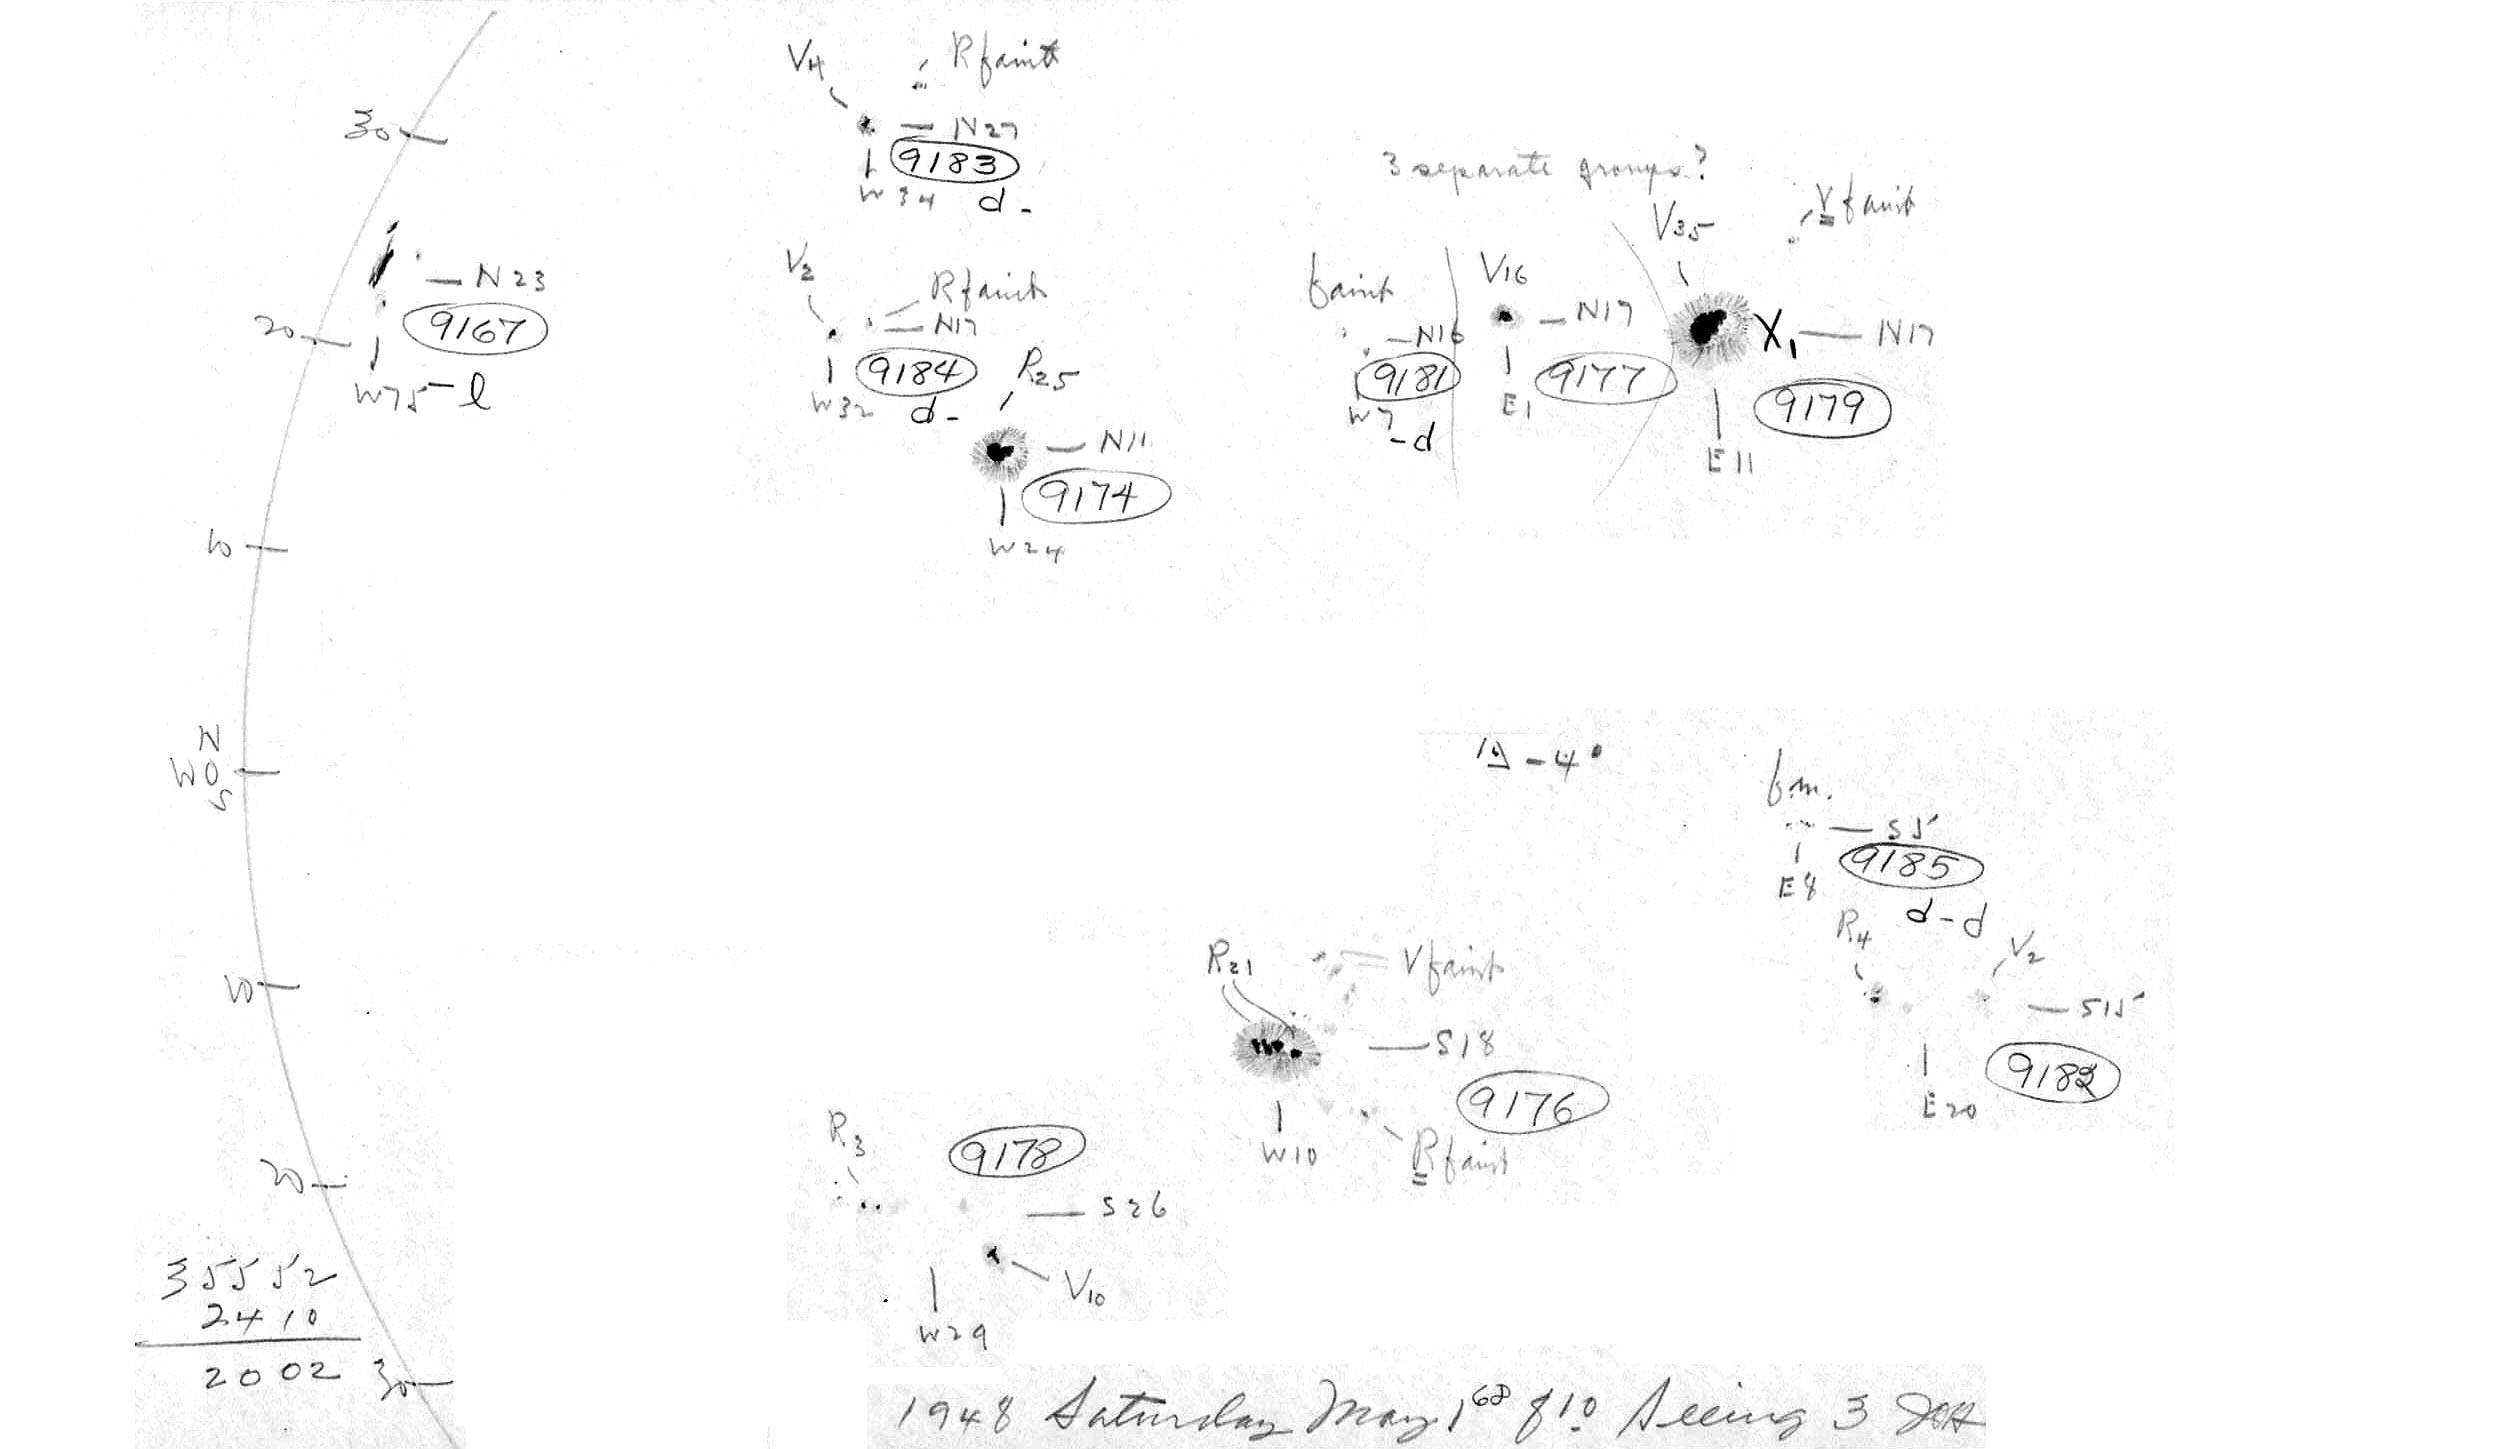 V4 R faint
30
N27
9183
W34 d-
3 separate groups?
V faint
V35
N23
9167
20
W75 - l
V2
R faint
N17
9184
W32 d-
R25
N11
9174
W24
faint
N16
9181
W7
-d
V16
N17
9177
E1
X1 N17
9179
E11
10
N
W 0
S
-4°
S5
9185
E8
d-d
R4
V2
S15
E20
R21
V faint
S18
9176
W10
R faint
10
R3
9178
20
S26
V10
W29
35552
2410
2002
30
1948 Saturday May 1 68 Seeing 3